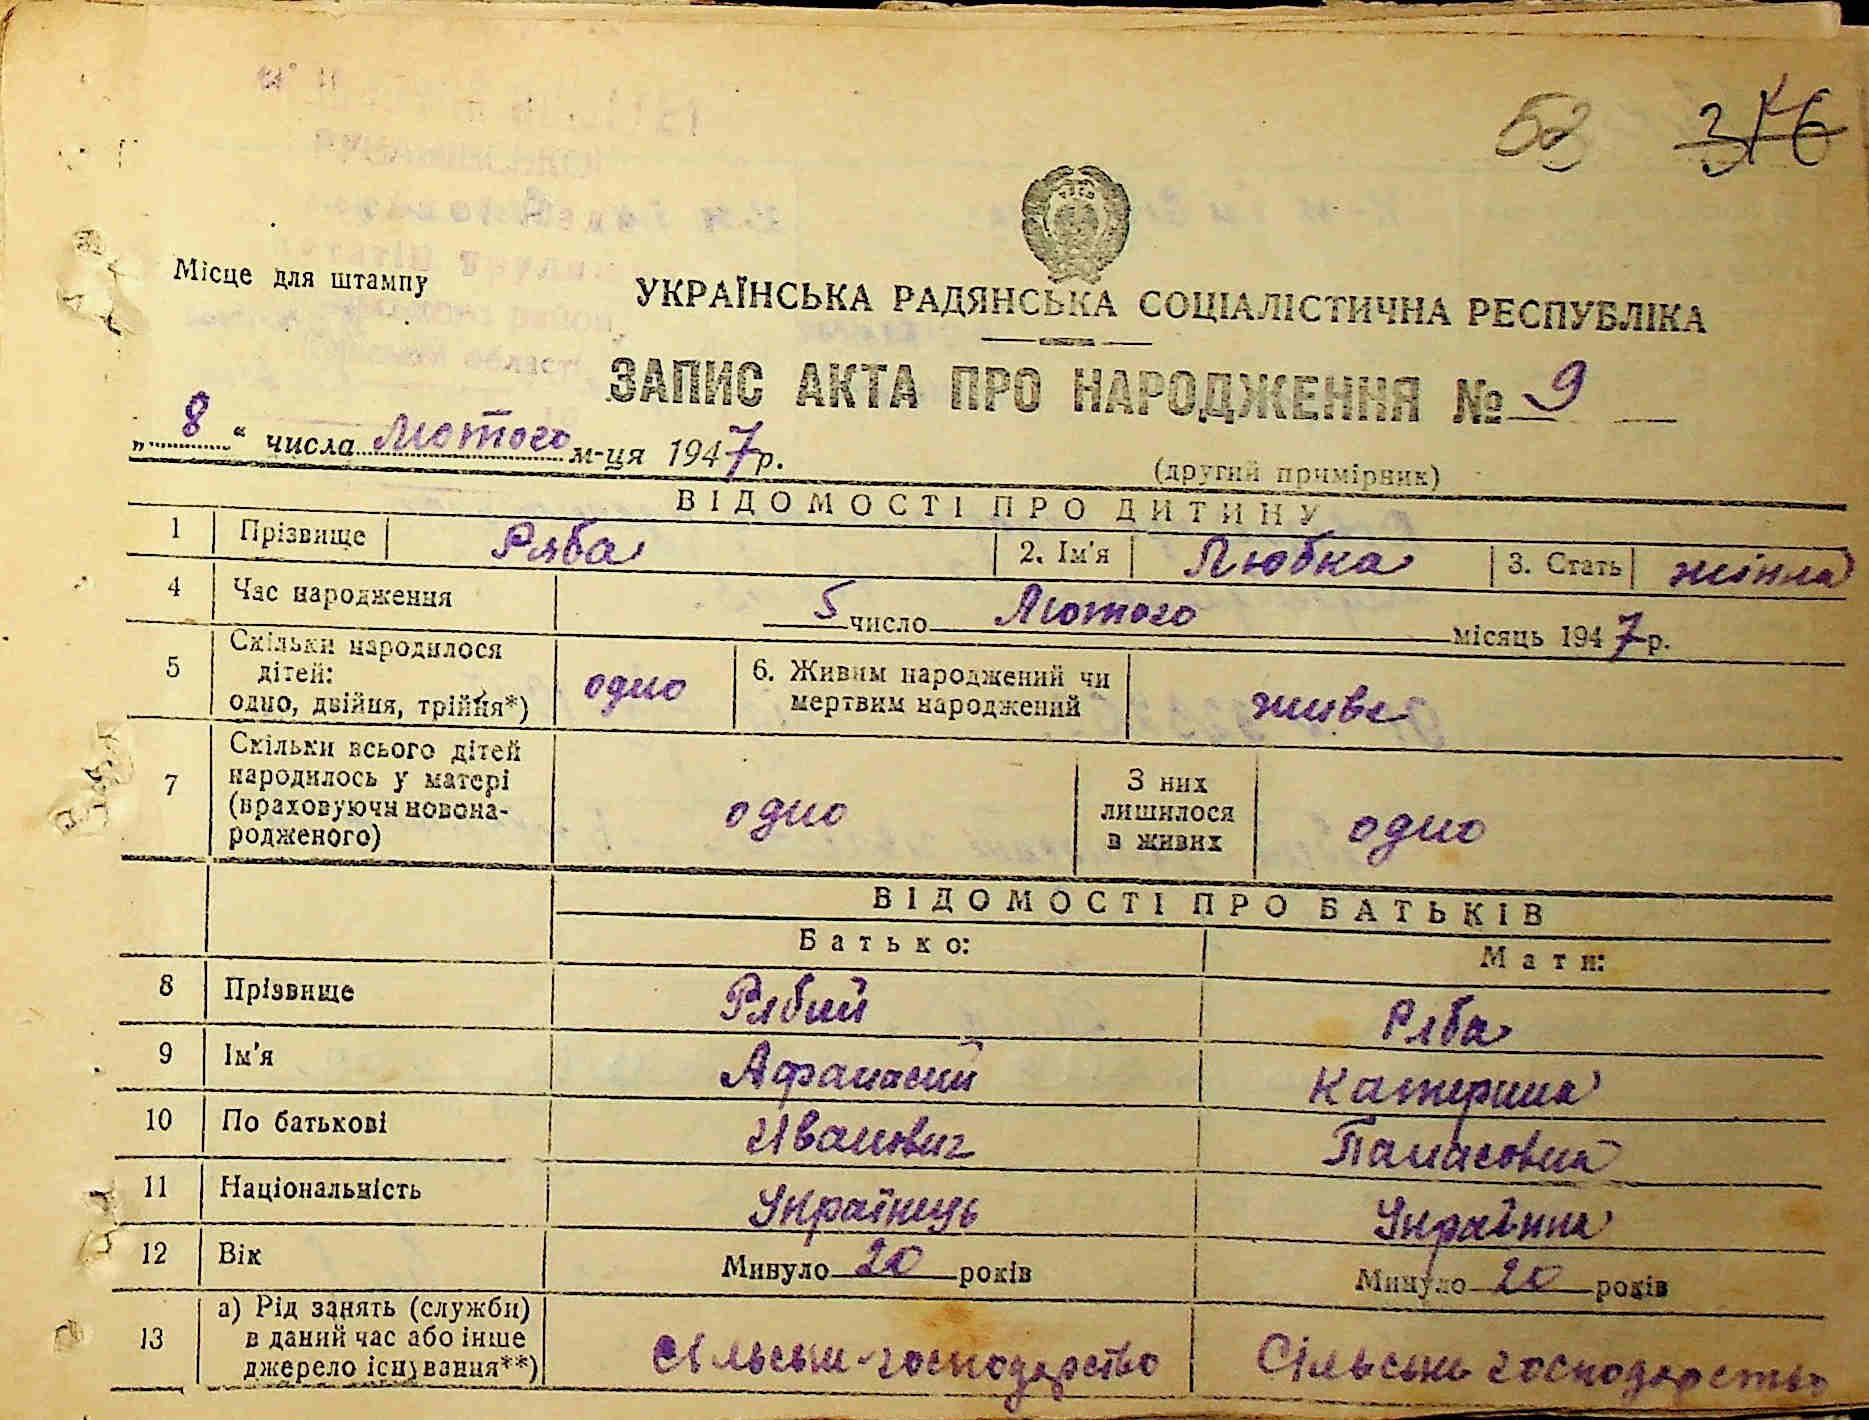 53 376
Місце для штампу
УКРАЇНСЬКА РАДЯНСЬКА СОЦІАЛІСТИЧНА РЕСПУБЛІКА
ЗАПИС АКТА ПРО НАРОДЖЕННЯ № 9
„8“ числа Лютого м-ця 1947 р.
(другий примірник)
ВІДОМОСТІ ПРО ДИТИНУ
1 Прізвище Ряба 2. Ім'я Любка 3. Стать жінка
4 Час народження 5 число Лютого місяць 1947 р.
5 Скільки народилося
дітей:
одно, двійня, трійня*) одно 6. Живим народжений чи
мертвим народжений живе
7 Скільки всього дітей
народилось у матері
(враховуючи новона-
родженого) одно З них
лишилося
в живих одно
ВІДОМОСТІ ПРО БАТЬКІВ
Батько: Мати:
8 Прізвище Рябий Ряба
9 Ім'я Афанасий Катерина
10 По батькові Иванович Панасовна
11 Національність Українець Українка
12 Вік Минуло 20 років Минуло 20 років
13 а) Рід занять (служби)
в даний час або інше
джерело існування**) Сільське-господарство Сільське господарство